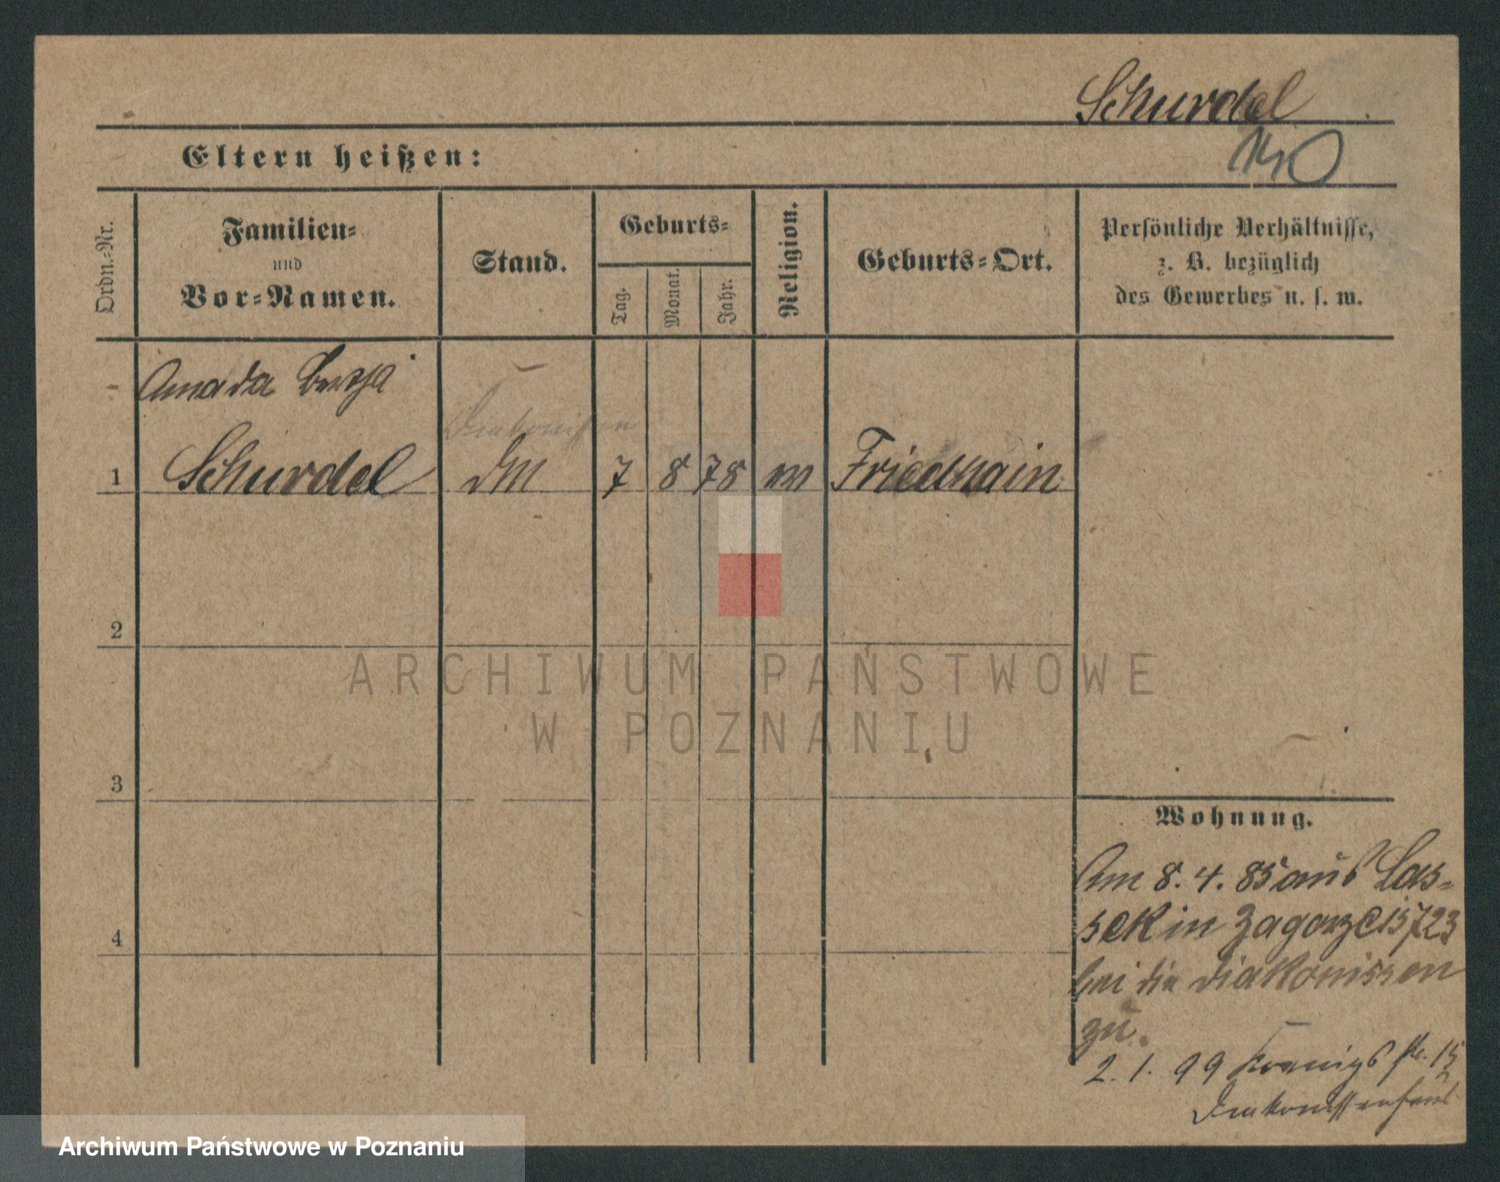 Schurdel
Eltern heißen:
Ordn.-Nr.
Familien-
und
Vor-Namen.
Stand.
Geburts-
Tag.
Monat.
Jahr.
Religion.
Geburts-Ort.
Persönliche Verhältnisse,
z. B. bezüglich
des Gewerbes u. s. w.
Amada
Diakonissen
1 Schurdel DM 7 8 78 Friedhain
2
3
4
Wohnung.
Am 8. 4. 85 aus Las-
sek in Zagorze 15723
bei die Diakonissen
zu.
2. 1. 99 Koenigs str. 15
Diakonissenhaus
ARCHIWUM PAŃSTWOWE
W POZNANIU
Archiwum Państwowe w Poznaniu